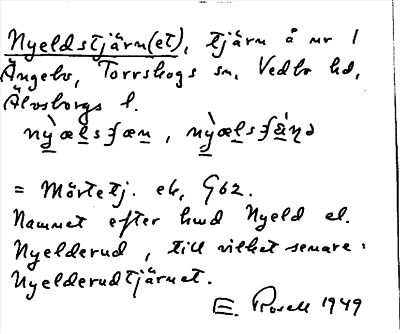 Nyeldstjärn(et), tjärn å nr 1
Ängebo, Torrskogs sn, Vedbo hd,
Älvsborgs l.
nỳælsʃæn, nỳælsʃǽnə
= Mörtetj. ek, G62.
Namnet efter hmd Nyeld el.
Nyelderud, till vilket senare:
Nyelderudtjärnet.
E. Rosell 1949